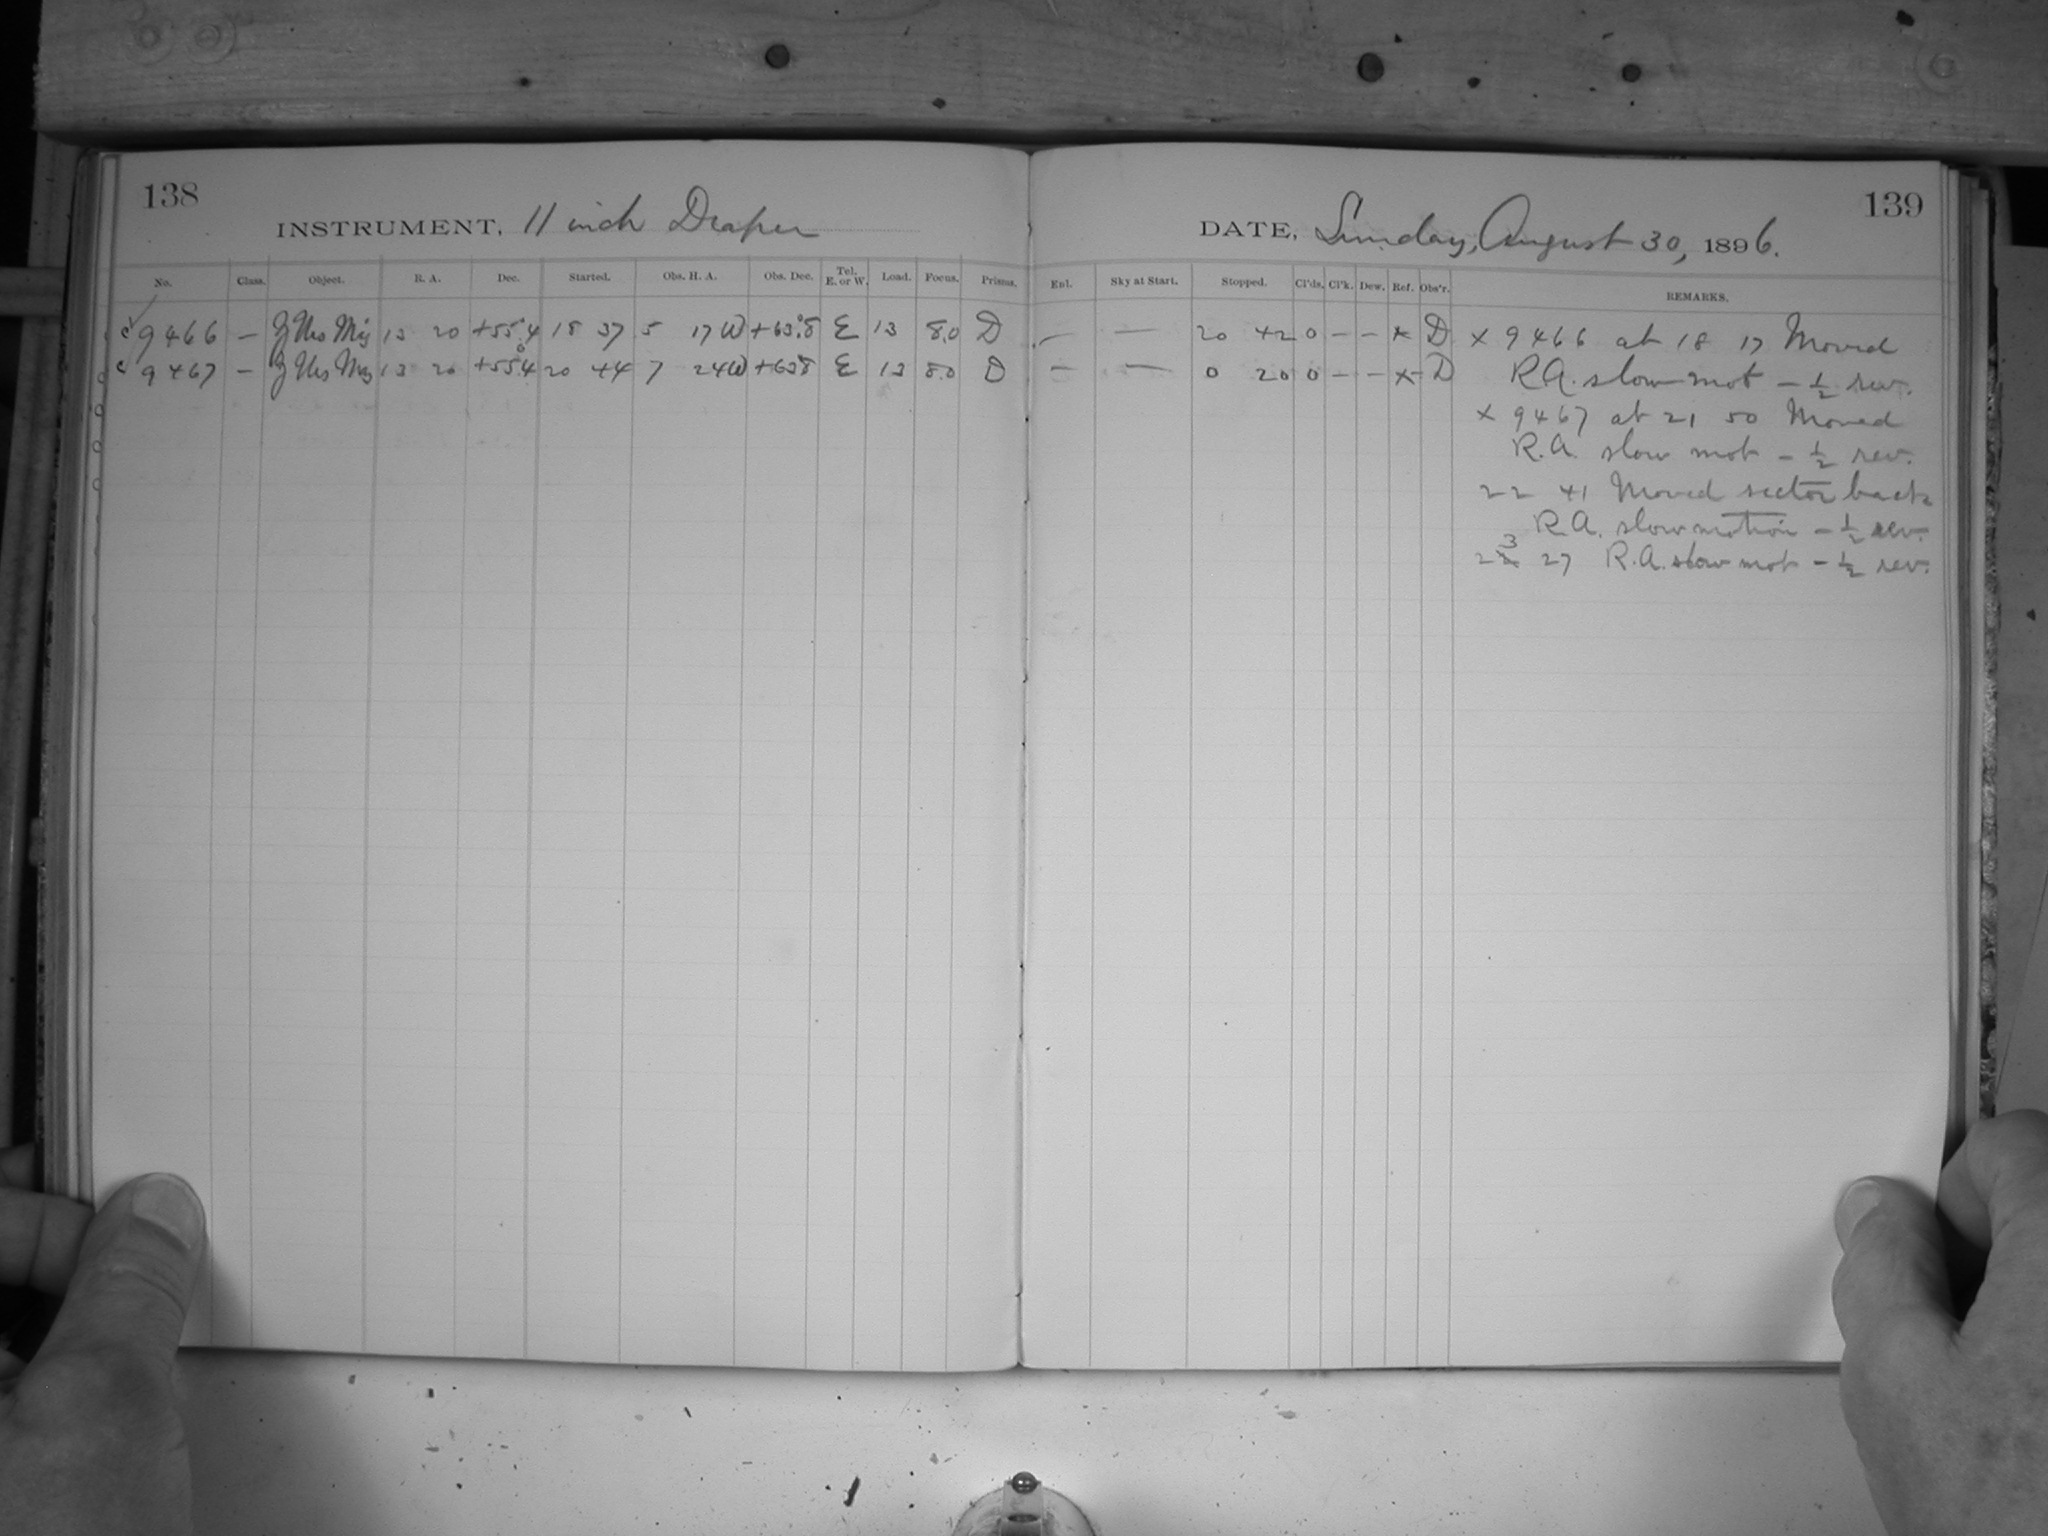 138
INSTRUMENT, 11 inch Draper
No. Class. Object. R. A. Dec. Started. Obs. H. A. Obs. Dec. Tel. E. or W. Load. Focus. Prisms.
c 9466 — ζ Urs Maj 13 20 +55°.4 18 37 5 17 W +63°.8 E 13 8.0 D
c 9467 — ζ Urs Maj 13 20 +55°.4 20 44 7 24 W +63°.8 E 13 8.0 D
139
DATE, Sunday, August 30, 1896.
Enl. Sky at Start. Stopped. Cl'ds. Cl'k. Dew. Ref. Obs'r. REMARKS.
— — 20 42 0 — — x D x 9466 at 18 17 Moved
— — 0 20 0 — — x D R.A. slow mot – ½ rev.
x 9467 at 21 50 Moved
R.A. slow mot – ½ rev.
22 41 Moved sector back
R.A. slow motion – ½ rev.
23 27 R.A. slow mot – ½ rev.